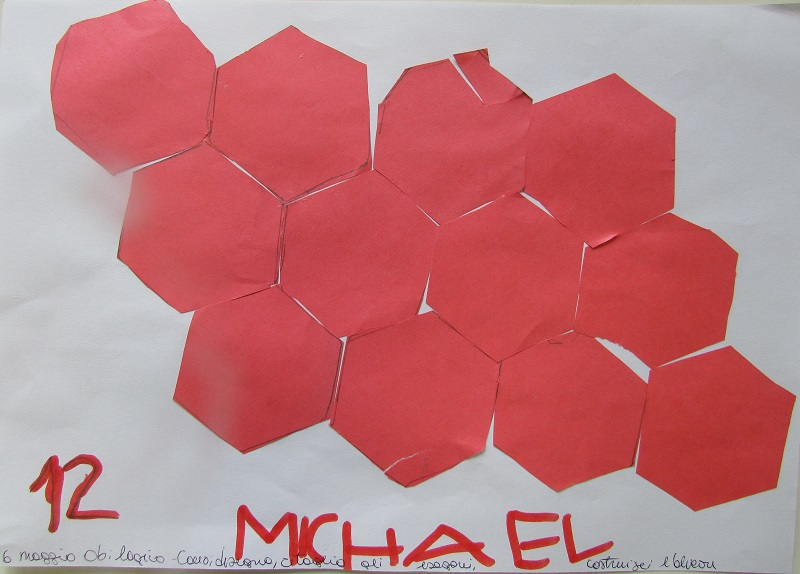 12
MICHAEL
6 maggio Ob. logico disegno, ritaglio gli esagoni, costruisci l'alveare